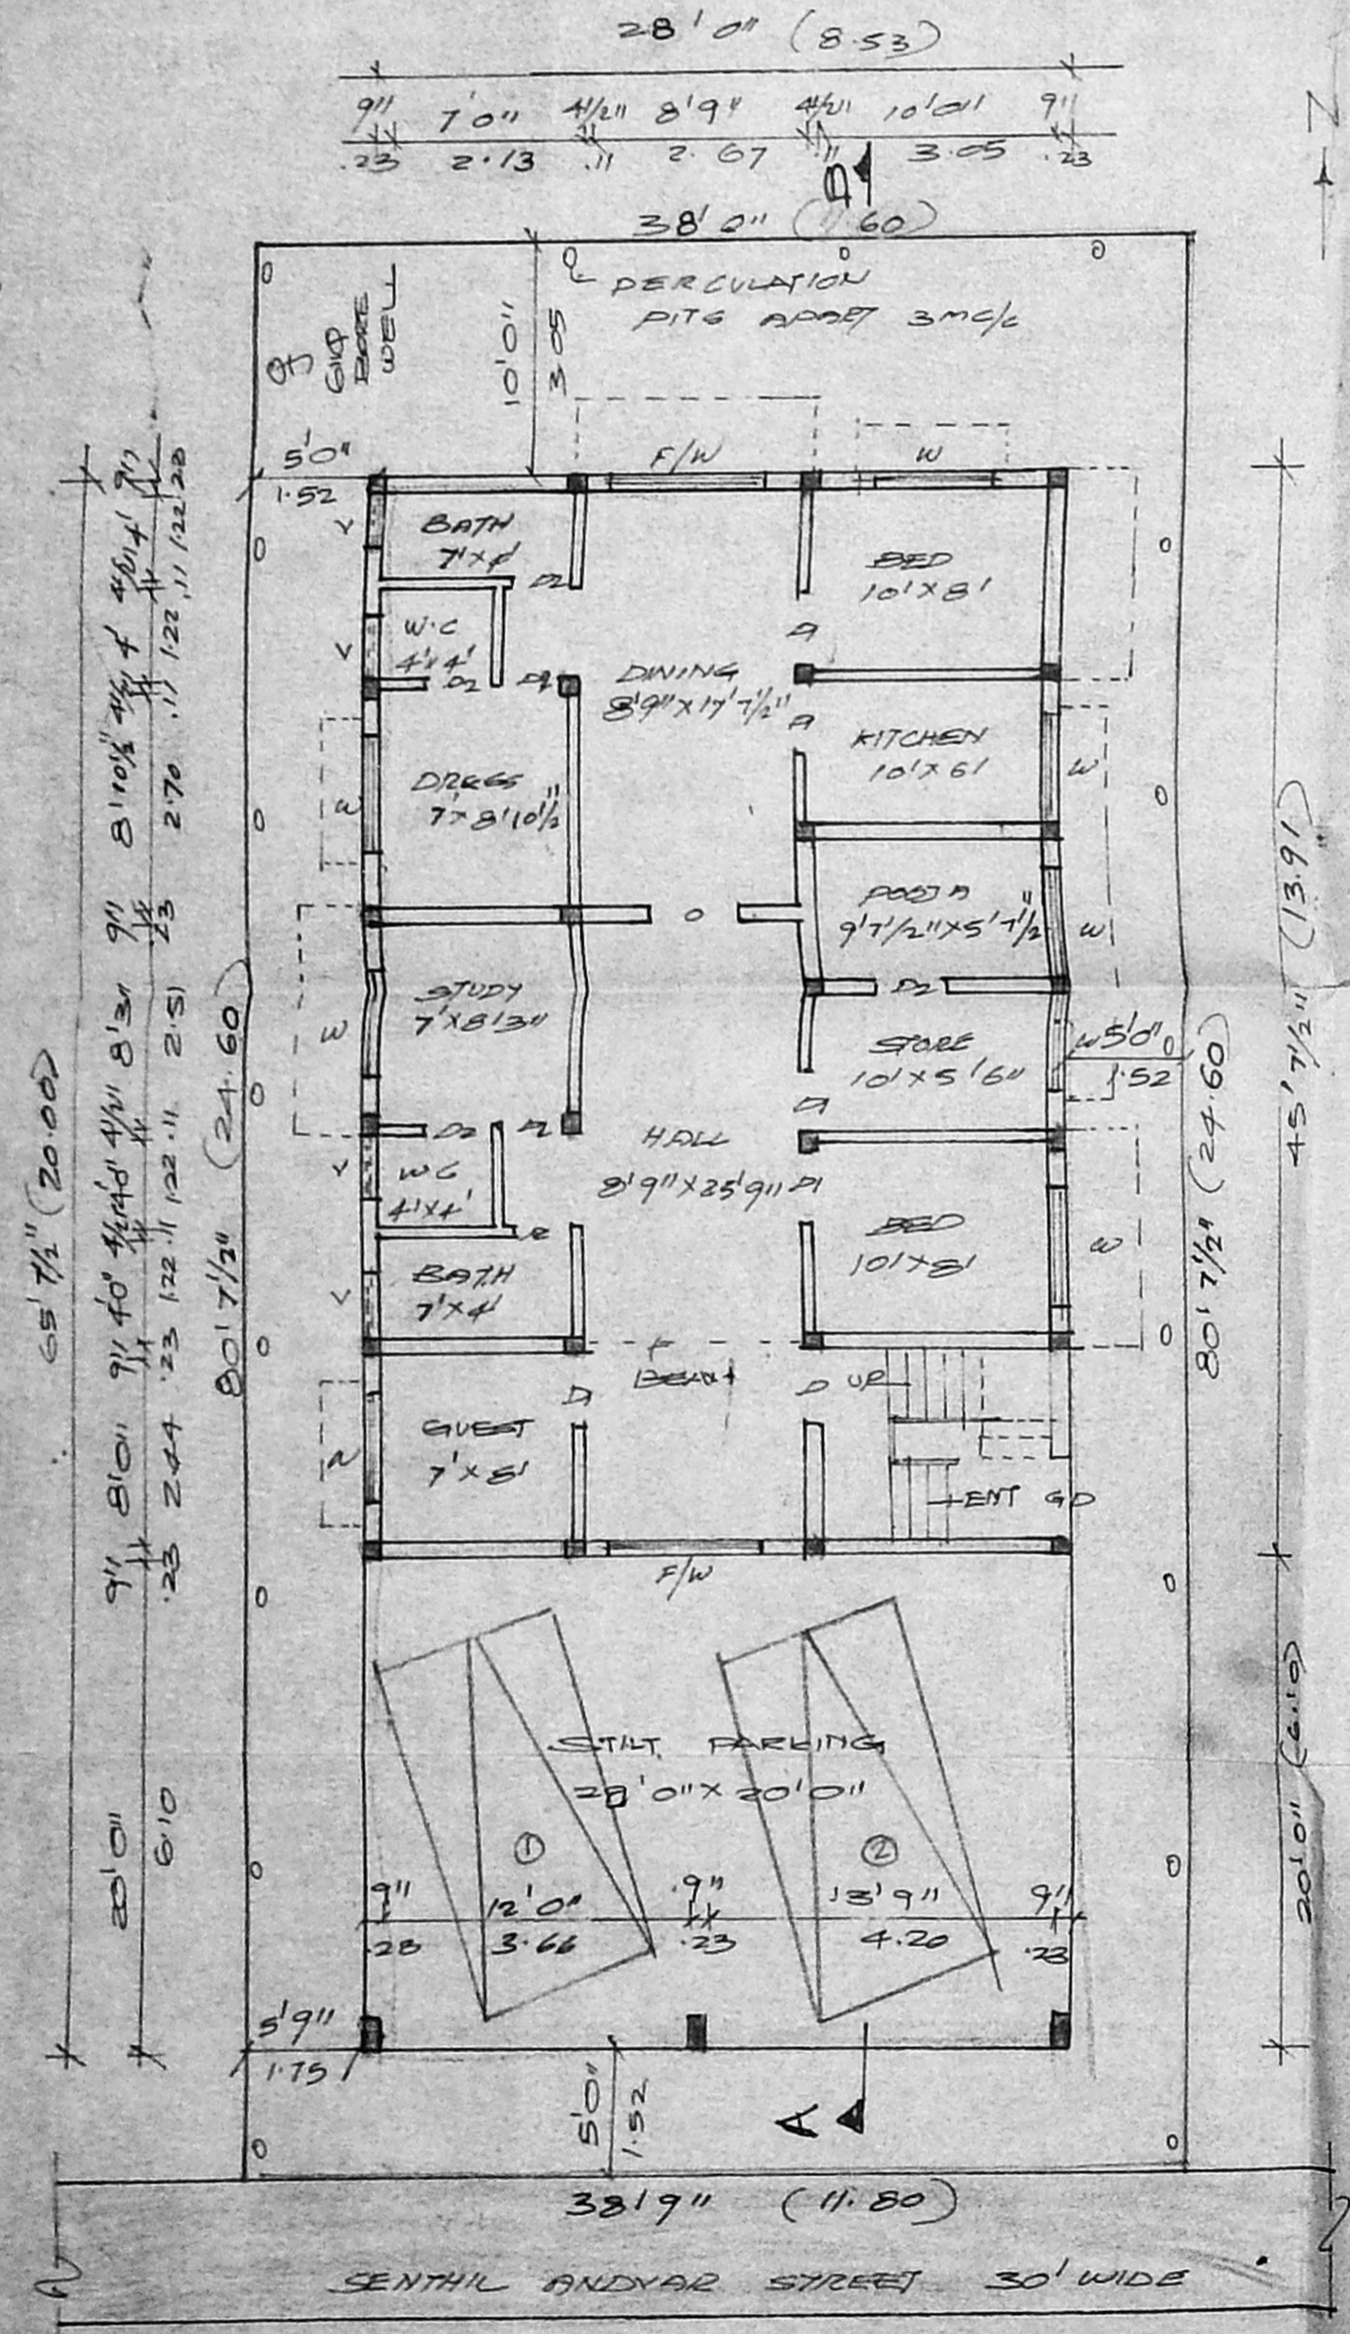 28'0" (8.53)
9" 7'0" 4½" 8'9" 4½" 10'0" 9"
.23 2.13 .11 2.67 .11 3.05 .23
38'0" (11.60)
PERCULATION
PITS APART 3M C/C
6"Ø
BORE
WELL
10'0"
3.05
5'0"
1.52
F/W
W
V
BATH
7'X4'
D2
BED
10'X8'
V
W.C
4'X4'
D2
D2
D1
DINING
8'9"X17'7½"
D1
KITCHEN
10'X6'
W
DRESS
7'X8'10½"
W
POOJA
9'7½"X5'7½"
W
O
D2
STUDY
7'X8'3"
W
STORE
10'X5'6"
W
5'0"
1.52
D1
D2
D2
HALL
8'9"X25'9"
D1
V
WC
4'X4'
BED
10'X8'
W
V
BATH
7'X4'
BEAM
D1
D
UP
GUEST
7'X8'
W
ENT GD
F/W
STILT PARKING
28'0"X20'0"
1
2
9" 12'0" 9" 13'9" 9"
.23 3.66 .23 4.20 .23
5'9"
1.75
5'0"
1.52
A
38'9" (11.80)
SENTHIL ANDVAR STREET 30' WIDE
65'7½" (20.00)
20'0" 9" 8'0" 9" 4'0" 4½" 4'0" 4½" 8'3" 9" 8'10½" 4½" 4' 4½" 4' 9"
6.10 .23 2.44 .23 1.22 .11 1.22 .11 2.51 .23 2.70 .11 1.22 .11 1.22 .23
80'7½" (24.60)
80'7½" (24.60)
45'7½" (13.91)
20'0" (6.10)